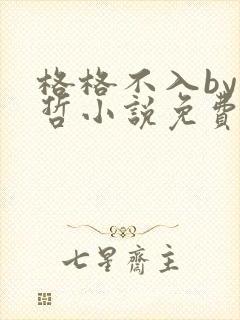 格格不入by
哲小說免費
七星齋主